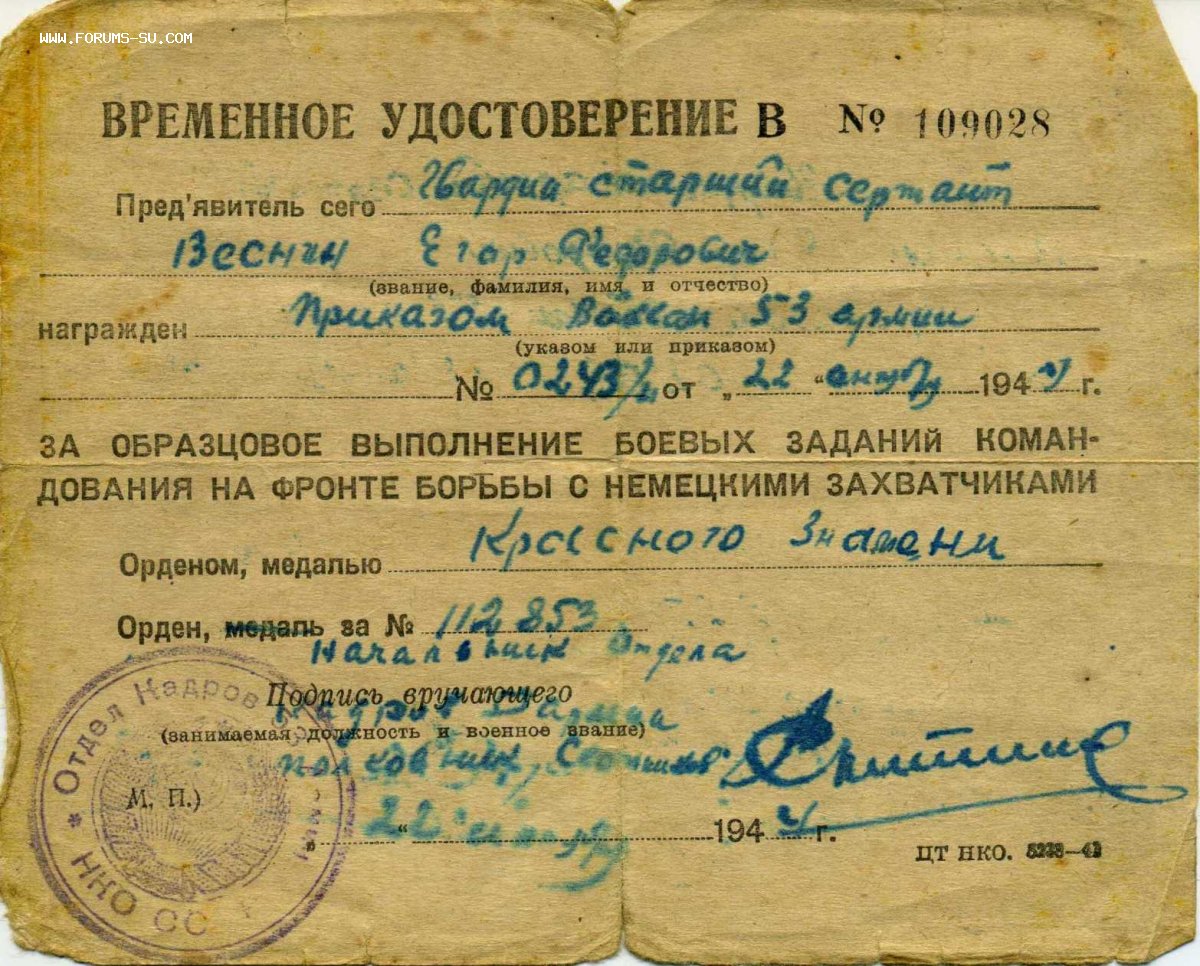 WWW.FORUMS-SU.COM
ВРЕМЕННОЕ УДОСТОВЕРЕНИЕ В № 109028
Пред'явитель сего Гвардии старший сержант
Веснин Егор Федорович
(звание, фамилия, имя и отчество)
награжден Приказом Войскам 53 армии
(указом или приказом)
№ 0243/н от „ 22 “ 194 4 г.
ЗА ОБРАЗЦОВОЕ ВЫПОЛНЕНИЕ БОЕВЫХ ЗАДАНИЙ КОМАН-
ДОВАНИЯ НА ФРОНТЕ БОРЬБЫ С НЕМЕЦКИМИ ЗАХВАТЧИКАМИ
Орденом, медалью Красного Знамени
Орден, медаль за № 112853
Начальник Отдела
Подпись вручающего
Кадров 53 армии
(занимаемая должность и военное звание)
полковник
М. П.)
„ 22 “ 194 4 г.
ЦТ НКО.
* Отдел Кадров 53 Армии
НКО СС